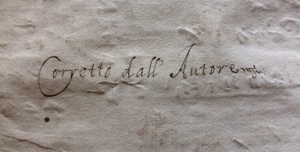 Corretto dall' Autore